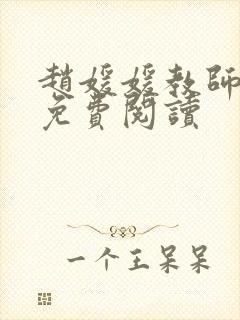 趙媛媛教師
免費閱讀
一个王呆呆